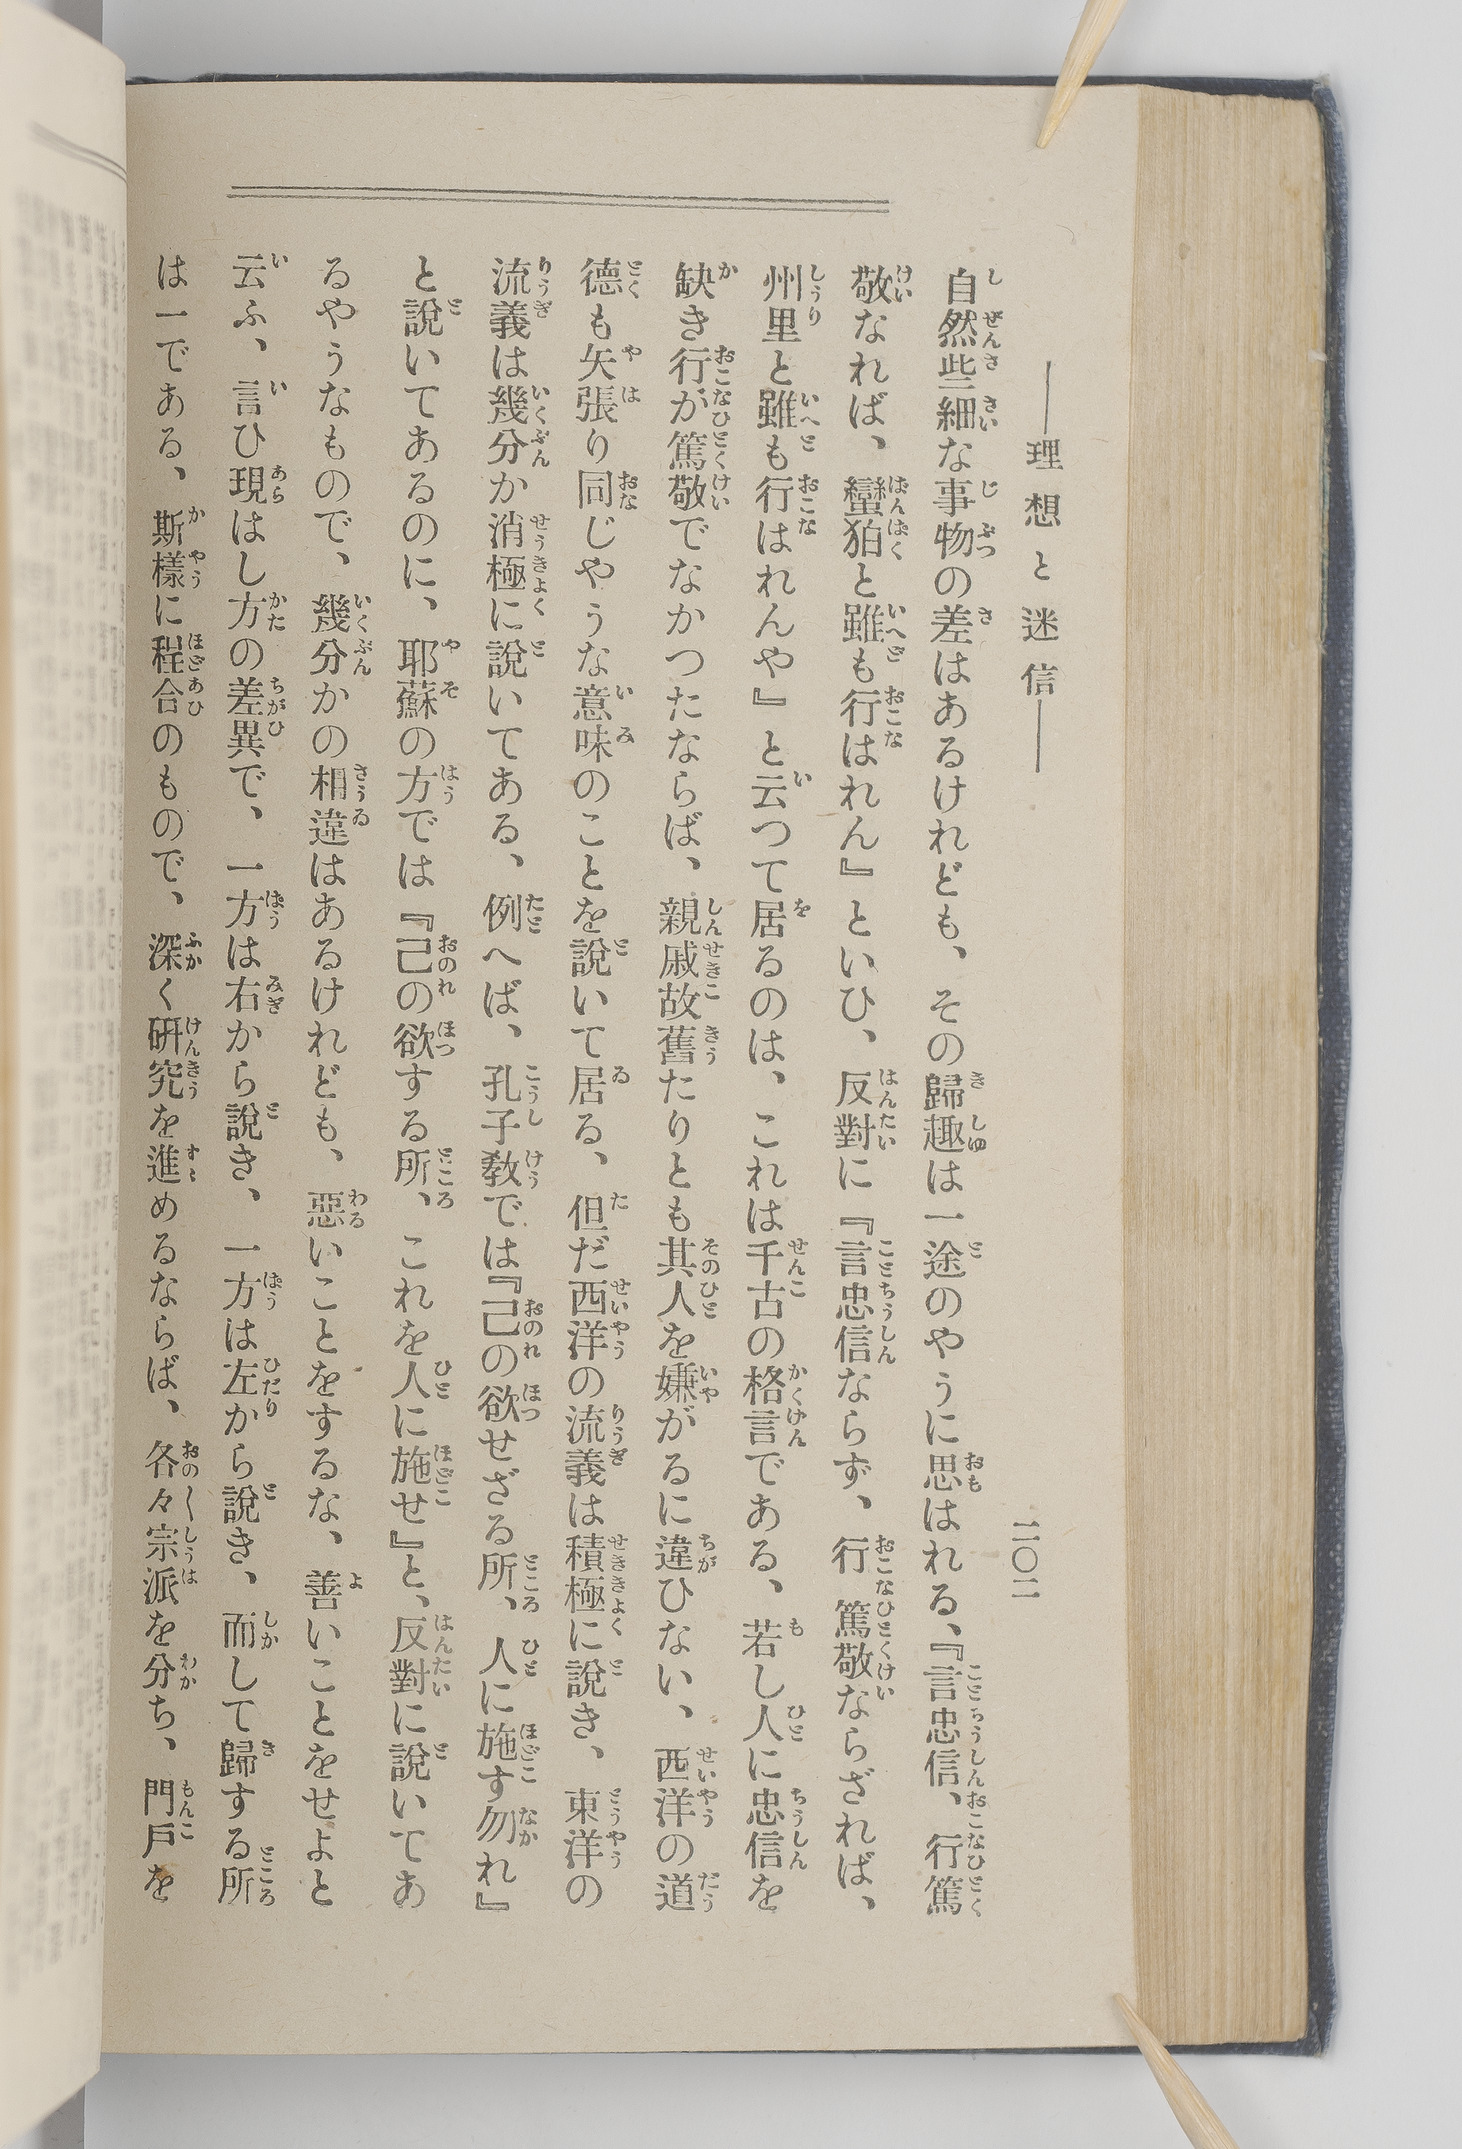 ――理想と迷信――
二〇二
自然些細な事物の差はあるけれども、その歸趣は一途のやうに思はれる、『言忠信、行篤
敬なれば、蠻狛と雖も行はれん』といひ、反對に『言忠信ならず、行篤敬ならざれば、
州里と雖も行はれんや』と云つて居るのは、これは千古の格言である、若し人に忠信を
缺き行が篤敬でなかつたならば、親戚故舊たりとも其人を嫌がるに違ひない、西洋の道
德も矢張り同じやうな意味のことを說いて居る、但だ西洋の流義は積極に說き、東洋の
流義は幾分か消極に說いてある、例へば、孔子敎では『己の欲せざる所、人に施す勿れ』
と說いてあるのに、耶蘇の方では『己の欲する所、これを人に施せ』と、反對に說いてあ
るやうなもので、幾分かの相違はあるけれども、惡いことをするな、善いことをせよと
云ふ、言ひ現はし方の差異で、一方は右から說き、一方は左から說き、而して歸する所
は一である、斯樣に程合のもので、深く硏究を進めるならば、各々宗派を分ち、門戶を